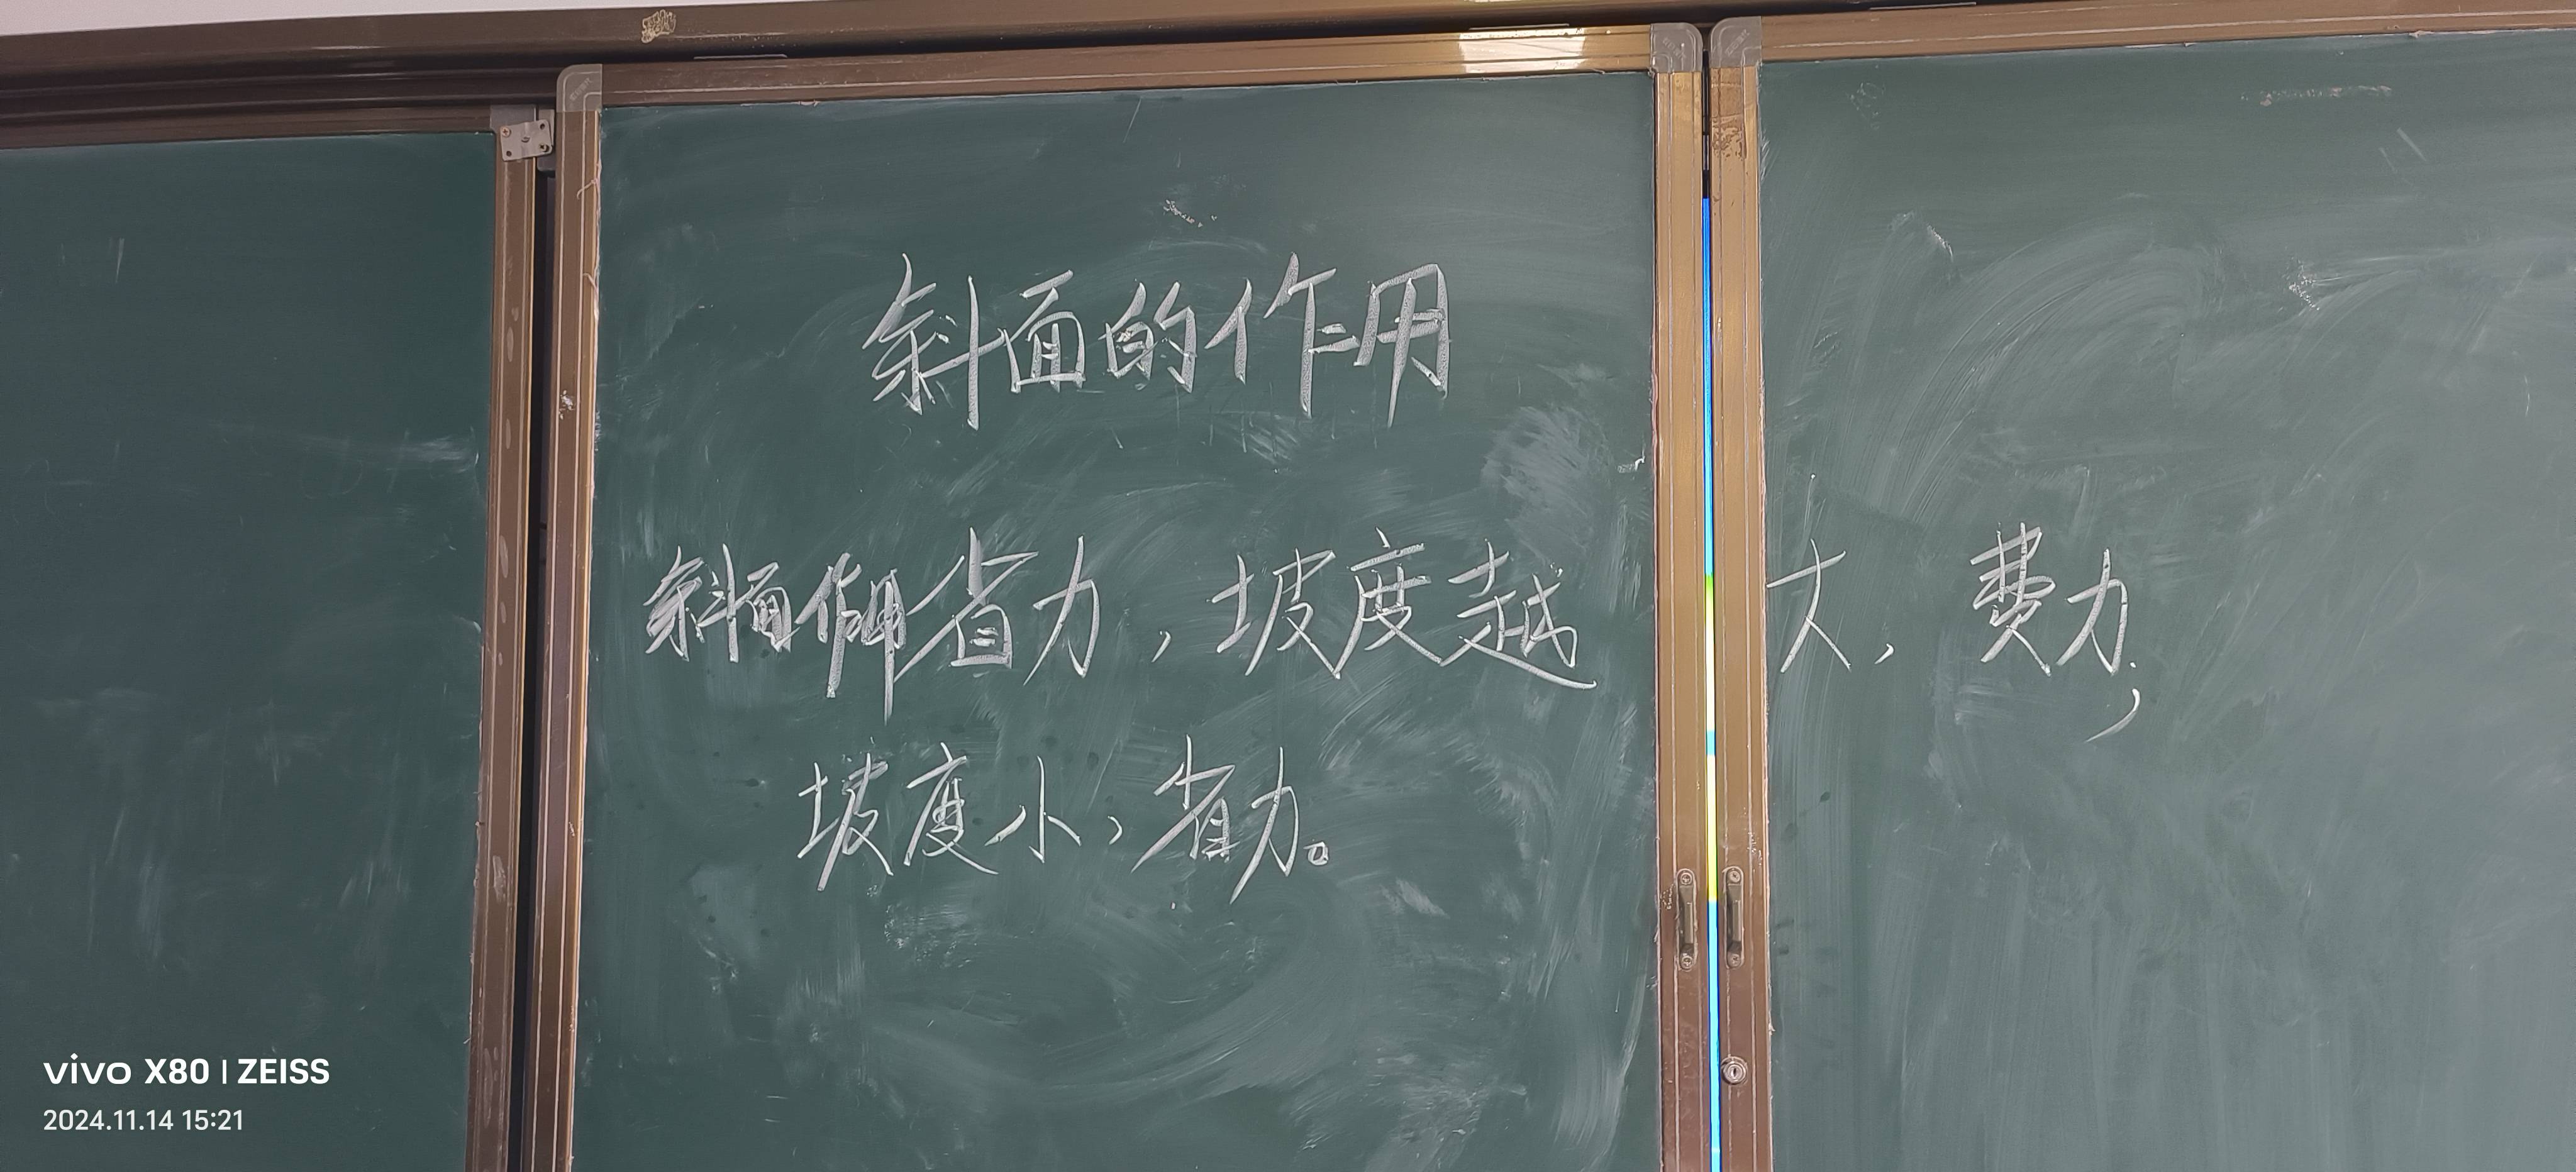 斜面的作用
斜面作用省力，坡度越大，费力，
坡度小，省力。
vivo X80 | ZEISS
2024.11.14 15:21